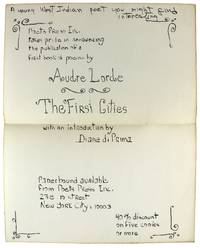 A young West Indian poet you might find
interesting
Poets Press Inc.
takes pride in announcing
the publication of a
first book of poems by
Audre Lorde
The First Cities
with an introduction by
Diane di Prima
Paperbound available
from Poets Press Inc.
New York City, 10003
40% discount
on five copies
or more